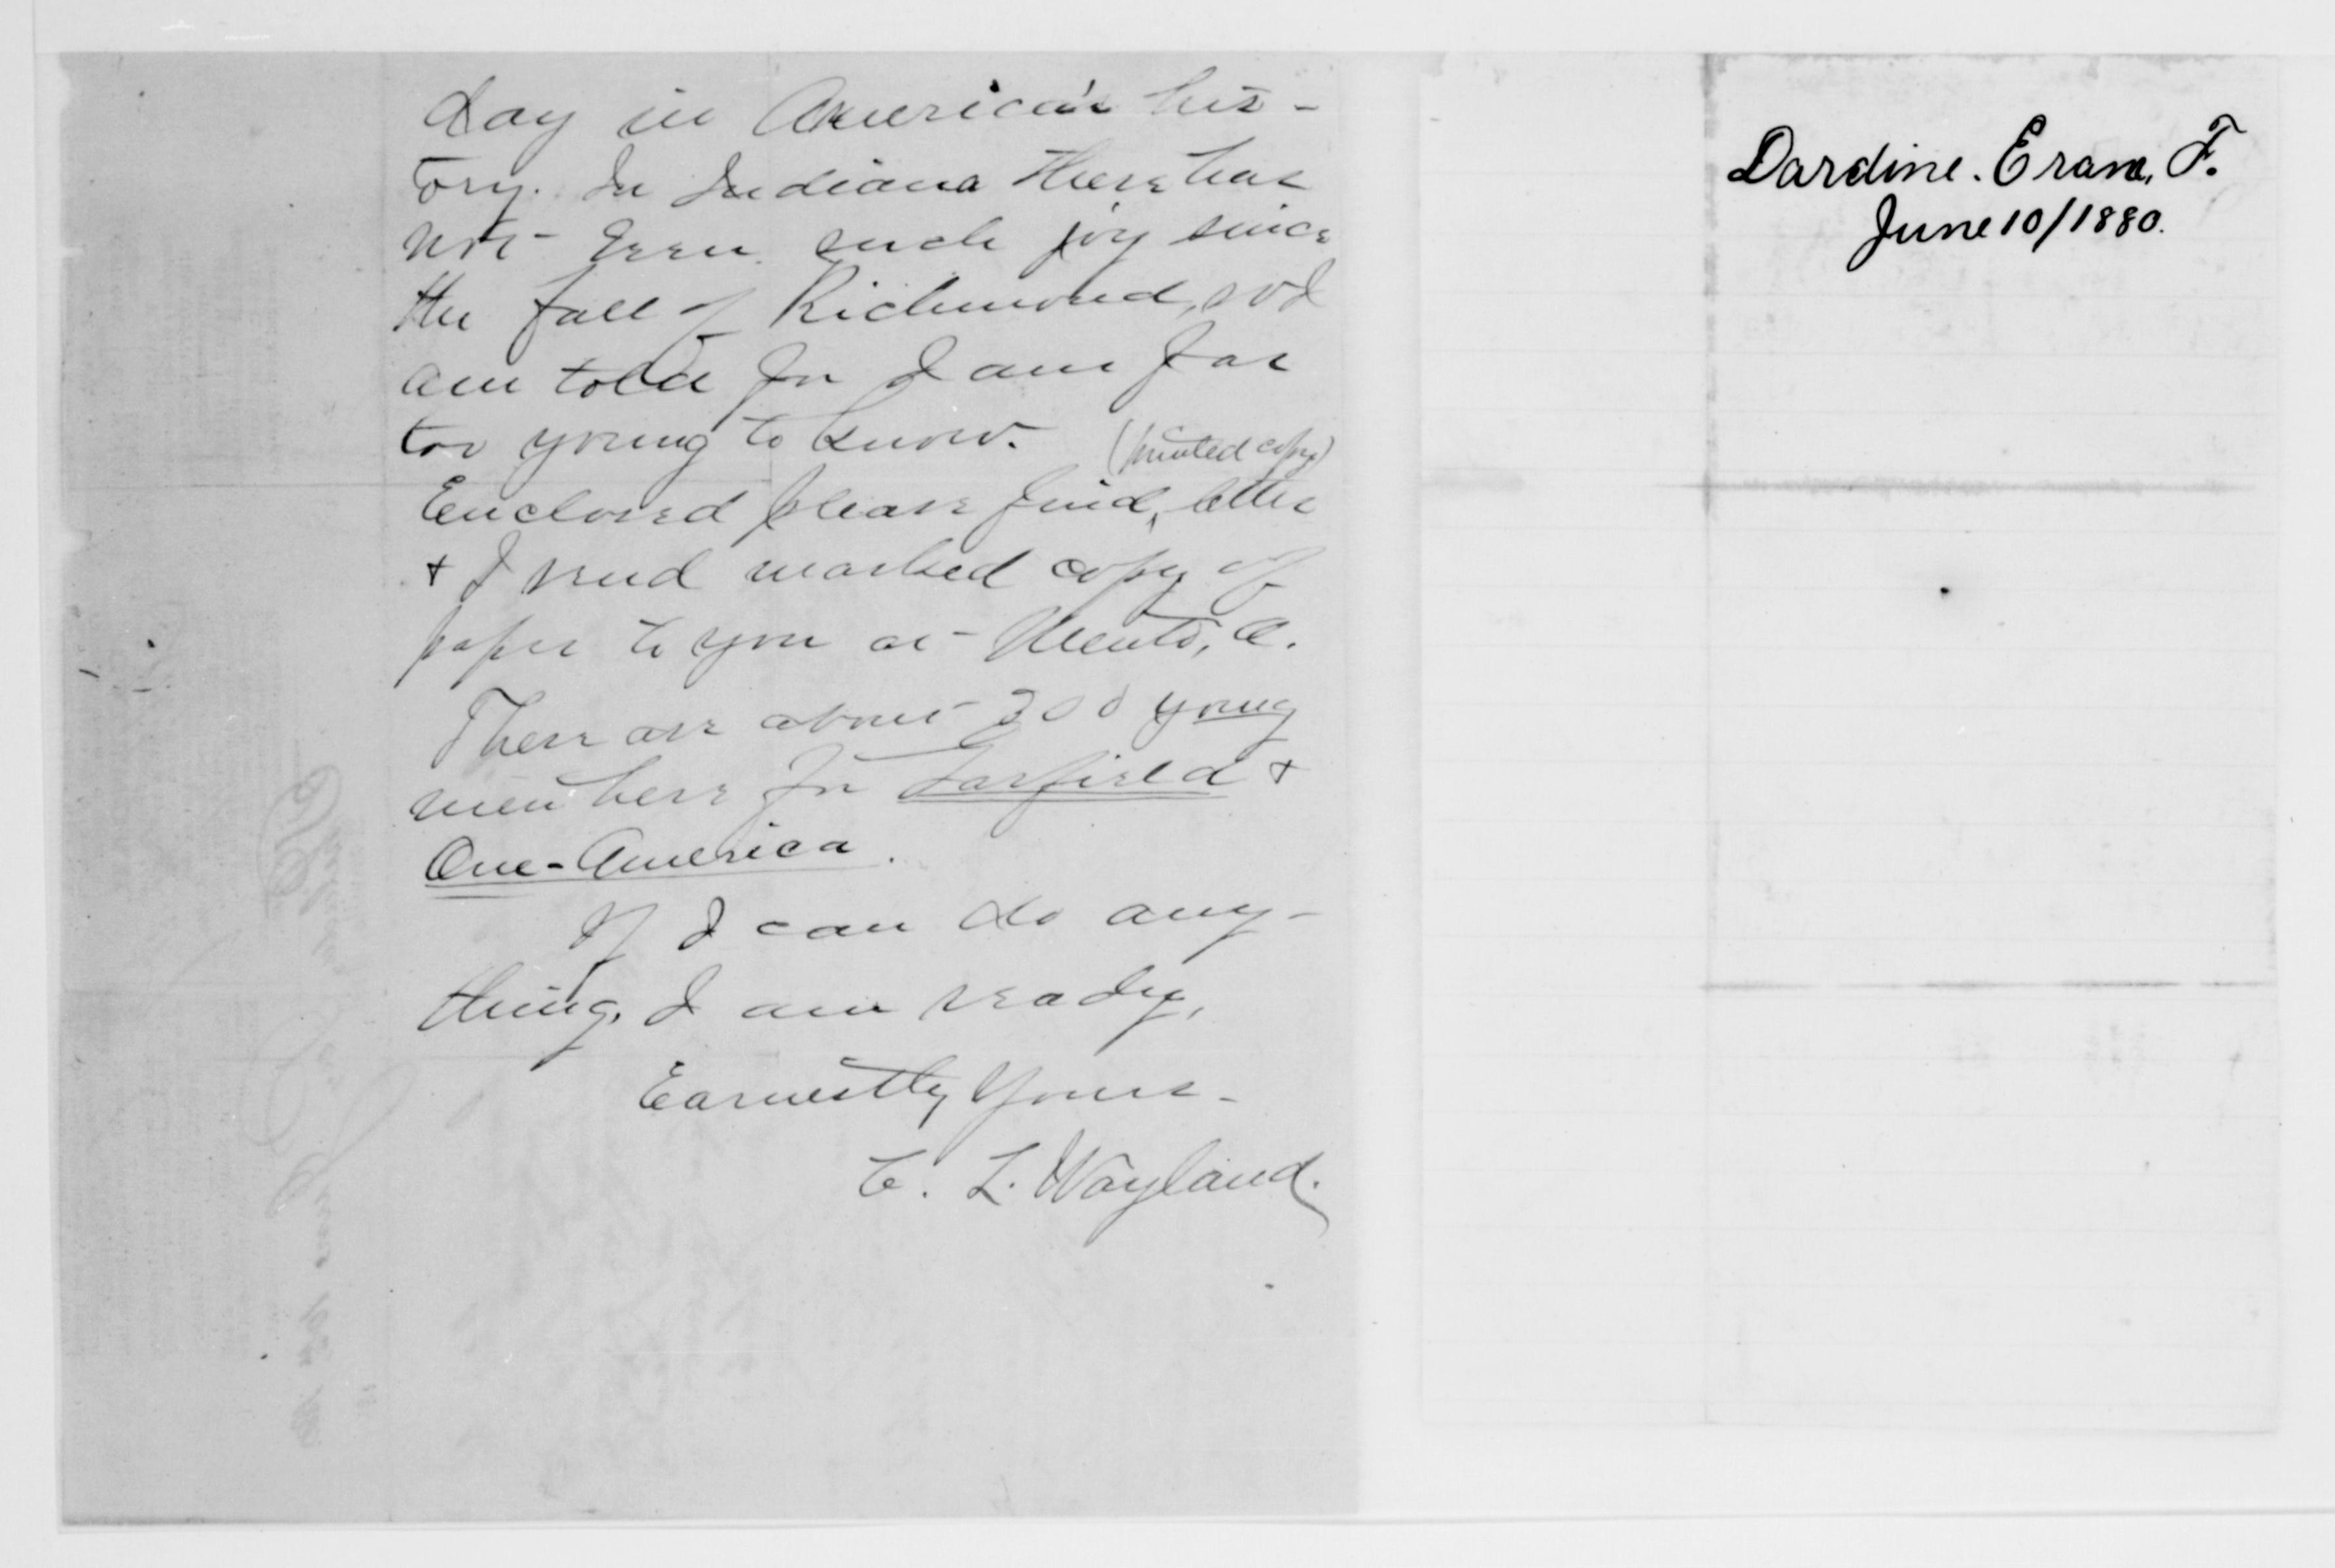 day in America's his-
tory. In Indiana there has
not been such joy since
the fall of Richmond, so I
am told for I am far
too young to know.
(printed copy)
Enclosed please find, letter
+ I send marked copy of
paper to you at Mento, O.
There are about 300 young
men here for Garfield +
One-America.
If I can do any-
thing, I am ready,
Earnestly Yours-
C. L. Wayland.
Dardine. Eram, F.
June 10/1880.